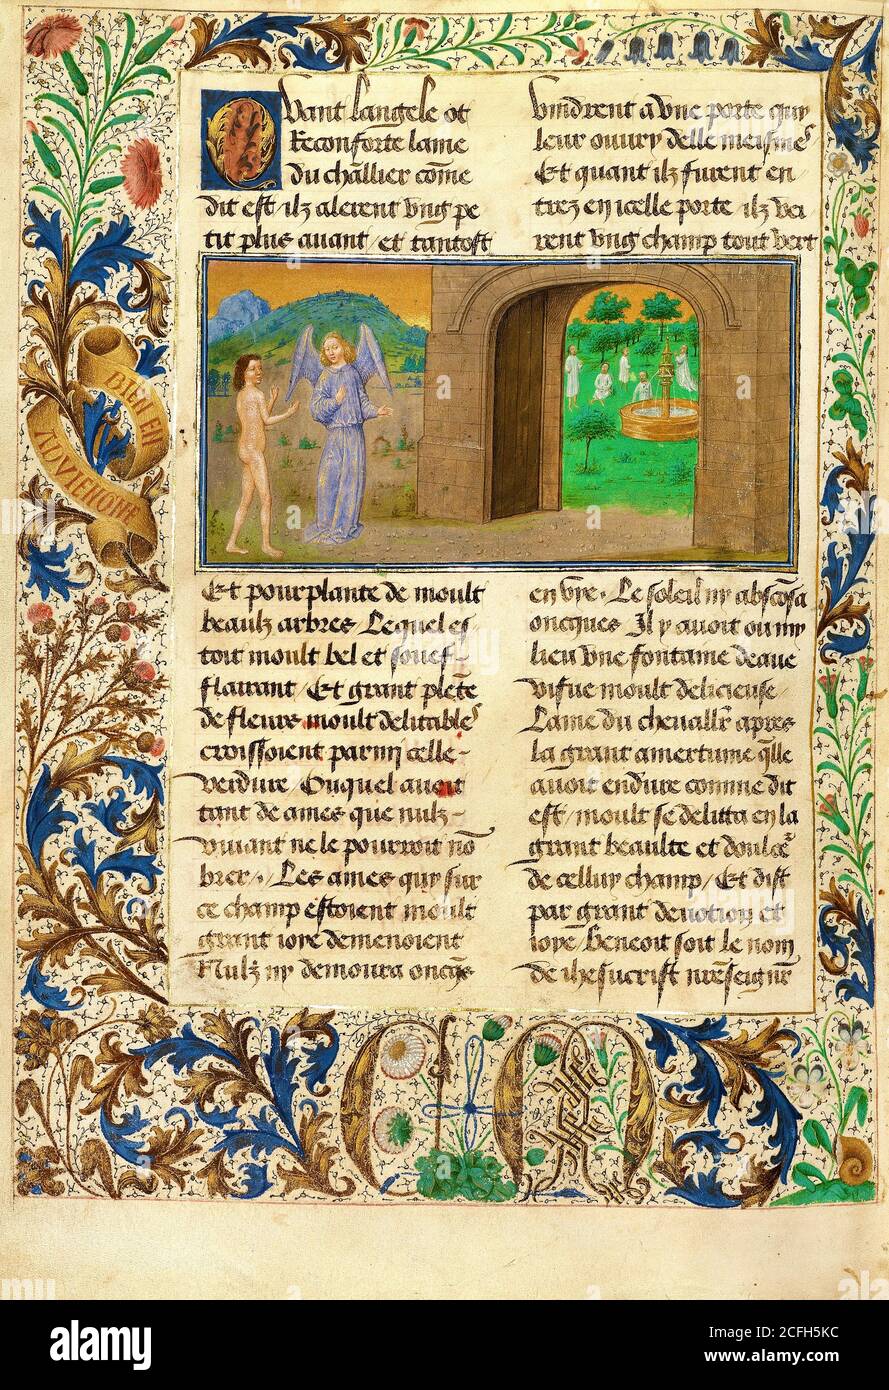 Quant langele ot
Reconforte lame
du chãllier cõme
dit est ilz alerent vng pe
tit plus auant / et tantost
vindrent a vne porte quy
leur ouury delle meismes
Et quant ilz furent en
trez en icelle porte ilz vei
rent vng champ tout vert
BIEN EN
AVIENGNE
Et pour plante de moult
beaulz arbres Lequel es
toit moult bel et souef
flairant / Et grant plẽte
de fleurs moult delitables
croissoient parmy celle
verdure / Ouquel auoit
tant de ames que nulz
viuant ne le pourroit nõ
brer / Les ames quy sur
ce champ estoient moult
grant ioye demenoient
Nulz ny demoura oncq̃s
en vye. Le soleil ny abscõsa
oncques Il y auoit ou my
lieu vne fontaine deaue
vifue moult delicieuse /
Lame du cheuallr̃ apres
la grant amertume q̃lle
auoit endure comme dit
est / moult se delitta en la
grant beaulte et doulcer̃
de celluy champ / Et dist
par grant deuotion et
ioye / Benoit soit le nom
de ihesucrist nr̃e seignr̃
C M
alamy
Image ID: 2CFH5KC
www.alamy.com